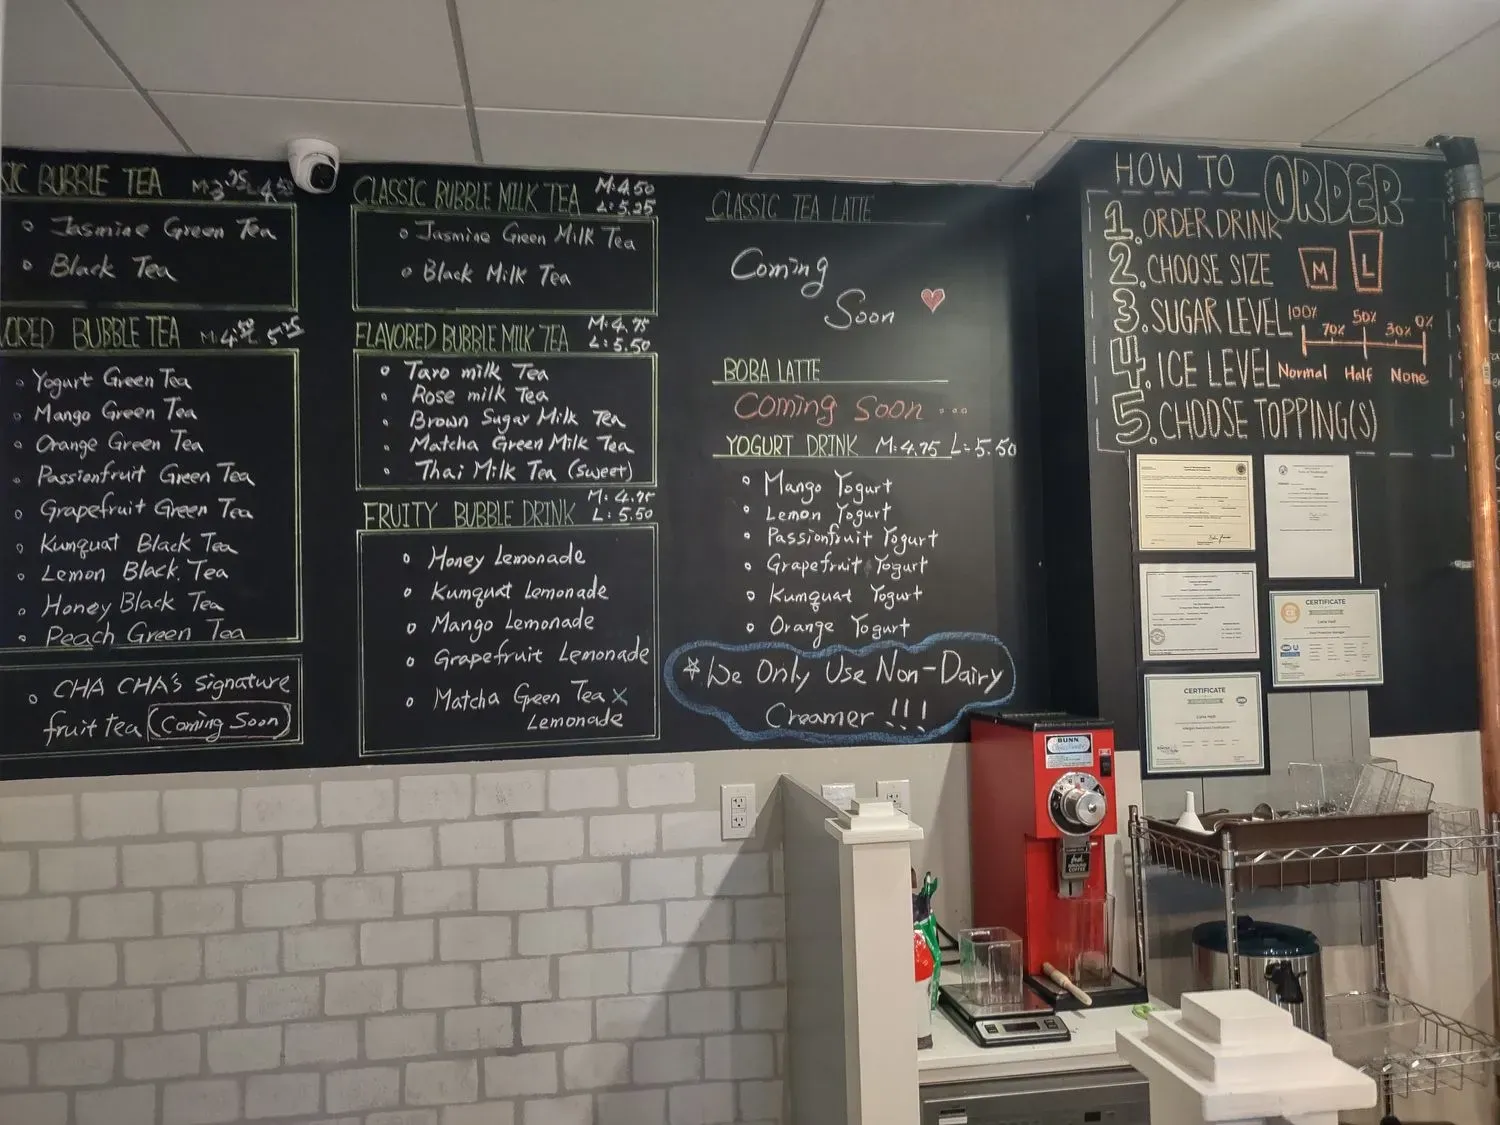 SIC BUBBLE TEA M:3.75 L:4.50
Jasmine Green Tea
Black Tea
ORED BUBBLE TEA M:4.50 5.25
Yogurt Green Tea
Mango Green Tea
Orange Green Tea
Passionfruit Green Tea
Grapefruit Green Tea
Kumquat Black Tea
Lemon Black Tea
Honey Black Tea
Peach Green Tea
CHA CHA'S Signature
fruit tea (Coming Soon)
CLASSIC BUBBLE MILK TEA M:4.50
L:5.25
Jasmine Green Milk Tea
Black Milk Tea
FLAVORED BUBBLE MILK TEA M:4.75
L:5.50
Taro milk Tea
Rose milk Tea
Brown Sugar Milk Tea
Matcha Green Milk Tea
Thai Milk Tea (sweet)
FRUITY BUBBLE DRINK M:4.75
L:5.50
Honey Lemonade
Kumquat Lemonade
Mango Lemonade
Grapefruit Lemonade
Matcha Green Tea x
Lemonade
CLASSIC TEA LATTE
Coming
Soon
BOBA LATTE
Coming Soon ...
YOGURT DRINK M:4.75 L:5.50
Mango Yogurt
Lemon Yogurt
Passionfruit Yogurt
Grapefruit Yogurt
Kumquat Yogurt
Orange Yogurt
*We Only Use Non-Dairy
Creamer !!!
HOW TO ORDER
1. ORDER DRINK
2. CHOOSE SIZE M L
3. SUGAR LEVEL 100% 70% 50% 30% 0%
4. ICE LEVEL Normal Half None
5. CHOOSE TOPPING(S)
CERTIFICATE
CERTIFICATE
BUNN